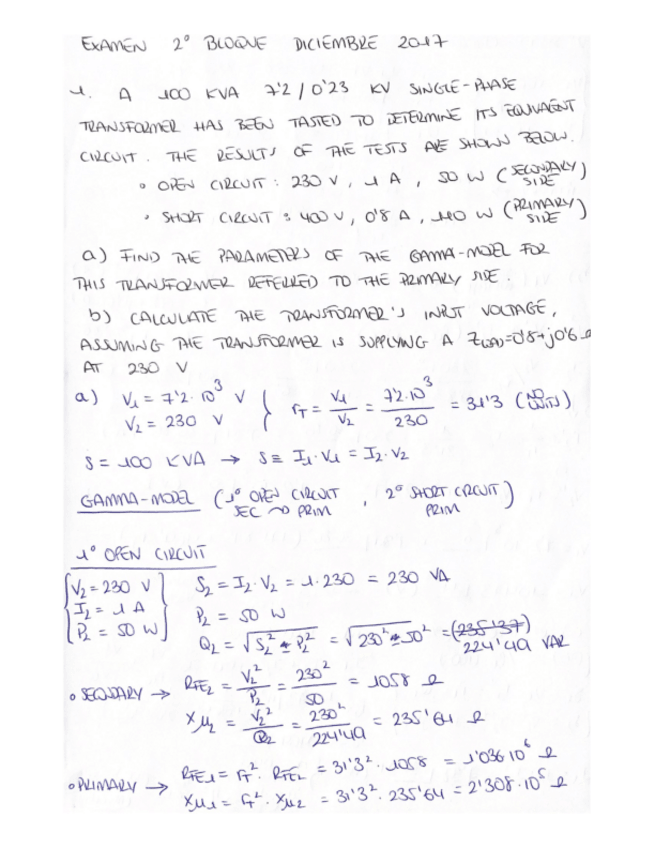 EXAMEN 2° BLOQUE DICIEMBRE 2017
1. A 100 KVA 7'2 / 0'23 KV SINGLE-PHASE
TRANSFORMER HAS BEEN TASTED TO DETERMINE ITS EQUIVAENT
CIRCUIT. THE RESULTS OF THE TESTS ARE SHOWN BELOW.
• OPEN CIRCUIT : 230 V, 1 A, 50 W (SECONDARY SIDE)
• SHORT CIRCUIT : 400 V, 0'8 A, 140 W (PRIMARY SIDE)
a) FIND THE PARAMETERS OF THE GAMMA-MODEL FOR
THIS TRANSFORMER REFERRED TO THE PRIMARY SIDE.
b) CALCULATE THE TRANSFORMER'S INPUT VOLTAGE,
ASSUMING THE TRANSFORMER IS SUPPLYING A Z LOAD = 0'8+j0'6 Ω
AT 230 V
a) V1 = 7'2·10^3 V } rT = V1/V2 = 7'2·10^3/230 = 31'3 (NO UNITS)
V2 = 230 V
S = 100 KVA → S ≡ I1·V1 = I2·V2
GAMMA-MODEL (1° OPEN CIRCUIT SEC → PRIM, 2° SHORT CIRCUIT PRIM)
1° OPEN CIRCUIT
V2 = 230 V S2 = I2·V2 = 1·230 = 230 VA
I2 = 1 A P2 = 50 W
P2 = 50 W Q2 = √(S2² - P2²) = √(230² - 50²) = (235'37) 224'49 VAR
• SECONDARY → RFE2 = V2²/P2 = 230²/50 = 1058 Ω
Xμ2 = V2²/Q2 = 230²/224'49 = 235'64 Ω
• PRIMARY → RFE1 = rT²·RFE2 = 31'3²·1058 = 1'036·10^6 Ω
Xμ1 = rT²·Xμ2 = 31'3²·235'64 = 2'308·10^5 Ω